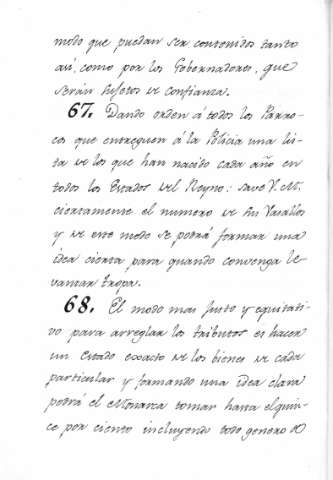 modo que puedan ser contenidos tanto
asi, como por los Gobernadores, que
serán sujetos de confianza.
67. Dando orden á todos los Parro-
cos que entreguen á la Policia una lis-
ta de los que han nacido cada año en
todos los Estados del Reyno: save V. M.
ciertamente el numero de su Vasallos
y de este modo se podrá formar una
idea cierta para quando convenga le-
vantar tropa.
68. El modo mas justo y equitati-
vo para arreglar los tributos es hacer
un Estado exacto de los bienes de cada
particular y formando una idea clara
podrá el Monarca tomar hasta el quin-
ce por ciento incluyendo todo genero de